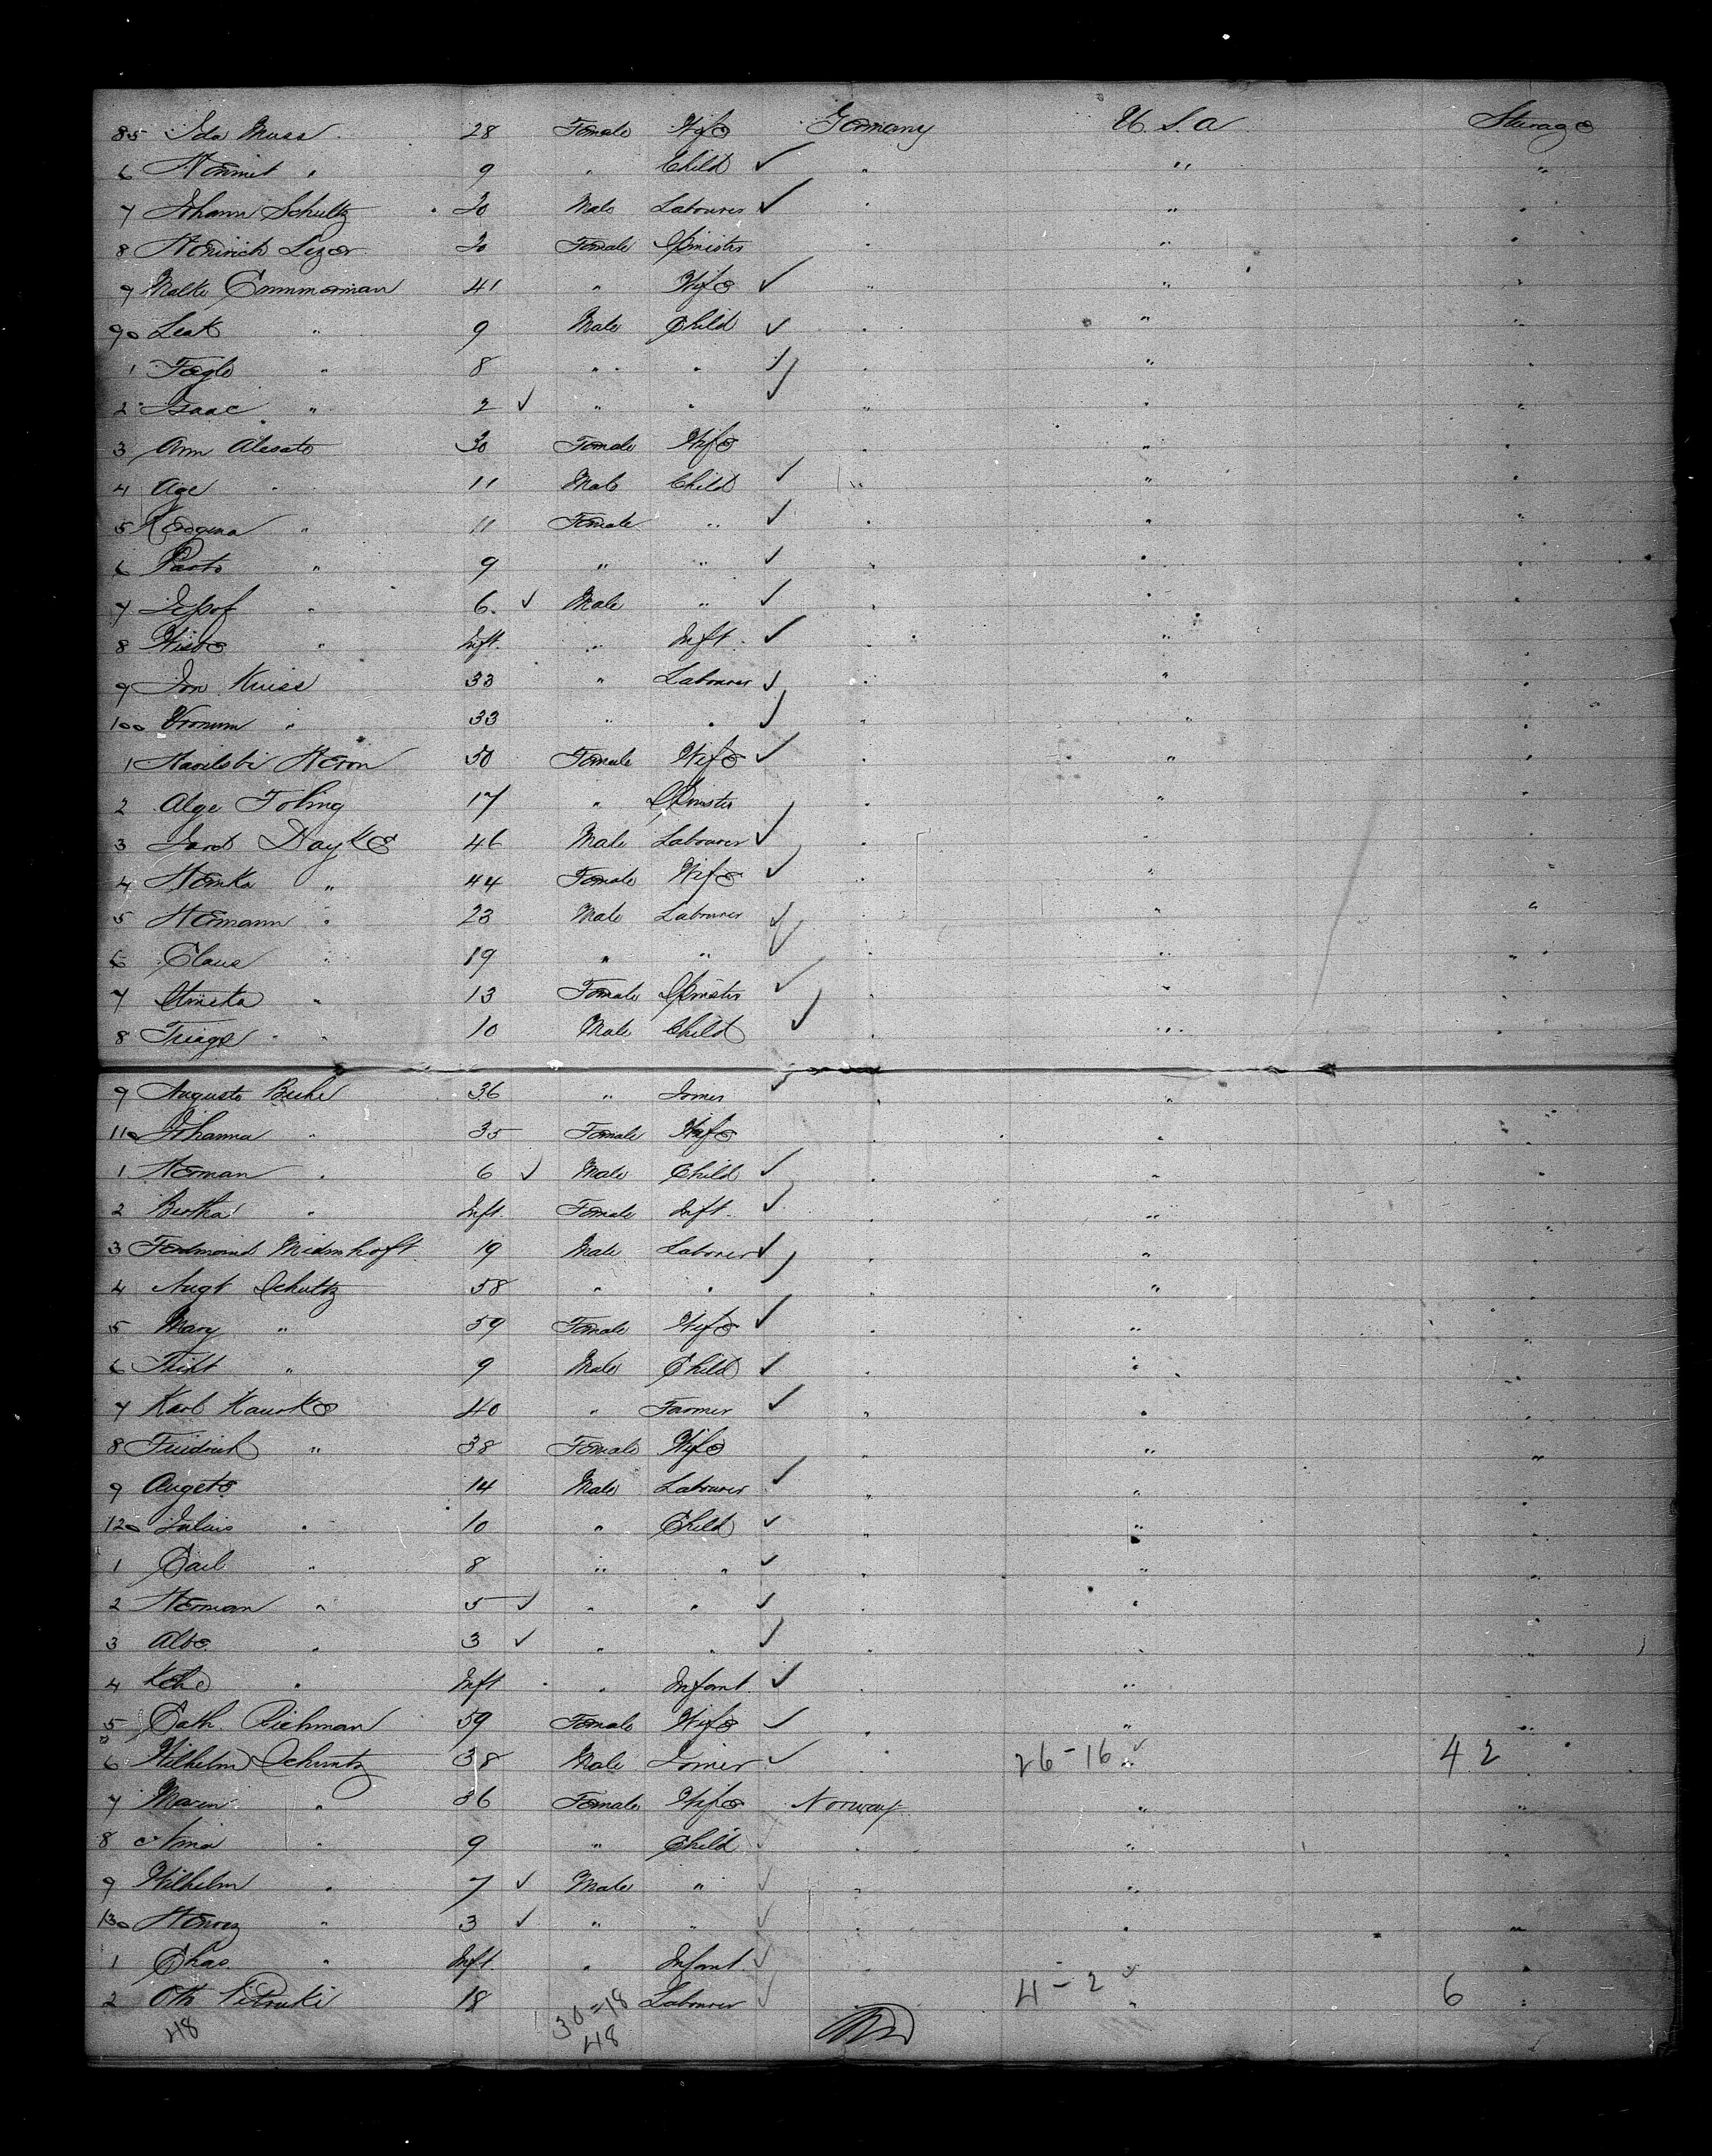 85 Ida Muss 28 Female Wife Germany U.S.a Sterage
6 " 9 " Child ✓ " " "
7 Johann Schultz 20 Male Labourer ✓ " " "
8 Heinrich Lezer 20 Female Spinister " " "
9 Malke Commerman 41 " Wife ✓ " " "
90 Leak " 9 Male Child ✓ " " "
1 Fagle " 8 " " ✓ " " "
2 Isaac " 2 ✓ " " ✓ " " "
3 Ann Alesato 30 Female Wife " " "
4 Age " 11 Male Child ✓ " " "
5 " 11 Female " ✓ " " "
6 " 9 " " ✓ " " "
7 " 6 ✓ Male " ✓ " " "
8 " Inft. " Inft. ✓ " " "
9 Jon Kuiss 33 " Labourer ✓ " " "
100 " 33 " " ✓ " " "
1 Heron 50 Female Wife ✓ " " "
2 Alge Toling 17 " Spinster " " "
3 DaykE 46 Male Labourer ✓ " " "
4 Hemka " 44 Female Wife ✓ " " "
5 Hermann " 23 Male Labourer ✓ " " "
6 Claus " 19 " " ✓ " " "
7 " 13 Female Spinster ✓ " " "
8 " 10 Male Child ✓ " " "
9 Auguste Buhe 36 " Joiner ✓ " "
110 Johanna " 35 Female Wife " " "
1 Herman " 6 ✓ Male Child ✓ " " "
2 Bertha " Inft. Female Inft. ✓ " " "
3 19 Male Laborer ✓ " " "
4 Augt Schultz 58 " " " " "
5 Mary " 59 Female Wife ✓ " " "
6 " 9 Male Child ✓ " " "
7 Karl Kaurke 40 " Farmer ✓ " " "
8 Friedrich " 38 Female Wife " " "
9 Augste 14 Male Labourer ✓ " " "
120 Julius " 10 " Child ✓ " " "
1 Carl " 8 " " ✓ " " "
2 Herman " 5 ✓ " " ✓ " " "
3 Albe " 3 ✓ " " ✓ " " "
4 " Inft " Infant ✓ " " "
5 Cath. Richman 59 Female Wife ✓ " " "
6 Wilhelm Schuntz 38 Male Joiner ✓ " 26-16 " 42 "
7 Maren " 36 Female Wife Norway " "
8 Nina " 9 " Child ✓ " " "
9 Wilhelm " 7 ✓ Male " ✓ " " "
130 Henry " 3 ✓ " " ✓ " " "
1 Chas. " Inft. " Infant ✓ " " "
2 Oth 18 Labourer ✓ 4-2 " 6 "
48 30=18
48